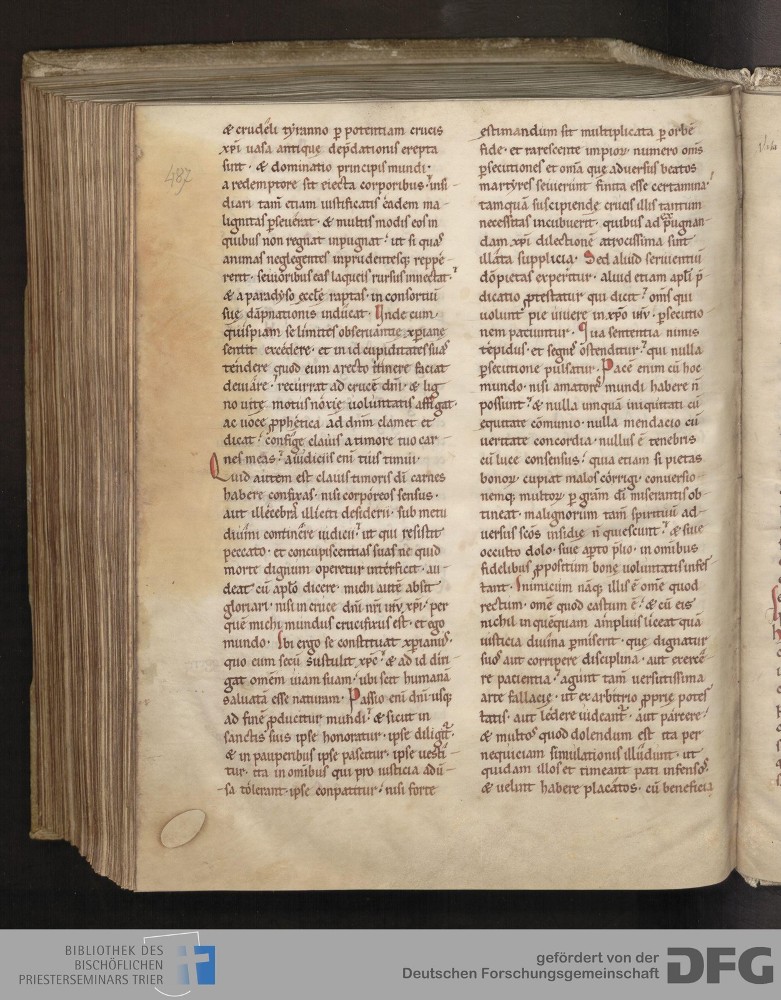 487
& crudeli tyranno ꝑ potentiam crucis
xp̄i uasa antique dep̄dationis erepta
sunt · & dominatio principis mundi ·
a redemptore sit eiecta corporibus · insi-
diari tam̄ etiam iustificatis eadem ma-
lignitas ꝑseuerat · & multis modis eos in
quibus non regnat inpugnat · ut si quas
animas neglegentes inprudentesq; reppe-
rerit · seuioribus eas laqueis rursus innectat ·
& a paradyso ecclę raptas · in consortiū
sue dāpnationis inducat · Unde cum ·
quispiam se limites obseruantie xp̄iane
sentit excedere · et in id cupiditates suas
tendere quod eum a recto itinere faciat
deuiare · recurrat ad crucē dn̄i · & lig
no uite motus noxie uoluntatis affigat ·
ac uoce ꝓphetica ad dn̄m clamet et
dicat · confige clauis a timore tuo car-
nes meas · a iudiciis enī tuis timui ·
Quid autem est clauis timoris dī carnes
habere confixas · nisi corporeos sensus ·
aut illecebra illiciti desiderii · sub metu
diuini continere iudicii · ut qui resistit
peccato · et concupiscentias suas ne quid
morte dignum operetur interficit · au-
deat cū aplo dicere · michi autē absit
gloriari · nisi in cruce dn̄i nr̄i ihū xp̄i · per
quē michi mundus crucifixus est · et ego
mundo · Ibi ergo se constituat xp̄ianus ·
quo eum secū sustulit xp̄c · & ad id diri
gat omēm uiam suam · ubi scit humanā
saluatā esse naturam · Passio enī dn̄i usq;
ad finē ꝓducitur mundi · & sicut in
sanctis suis ipse honoratur · ipse diligit᷑ ·
& in pauperibus ipse pascitur · ipse uesti-
tur · ita in omībus qui pro iusticia aduͥ-
sa tolerant · ipse conpatitur · nisi forte
estimandum sit multiplicata ꝑ orbē
fide · et rarescente impioꝝ numero om̄s
ꝑsecutiones et om̄a que aduersus beatos
martyres seuierunt finita esse certamina ·
tamquā suscipiende crucis illis tantum
necessitas incubuerit · quibus ad ꝓpugnan
dam xp̄i dilectionē atrocissima sunt
illata supplicia · Sed aliud seruientiū
dō pietas experitur · aliud etiam apli p̄
dicatio ꝓtestatur qui dicit · om̄s qui
uolunt pie uiuere in xp̄o ihū · ꝑsecutio
nem patiuntur · Qua sententia nimis
tepidus · et segnis ostenditur · qui nulla
ꝑsecutione pulsatur · Pacē enim cū hoc
mundo · nisi amatores mundi habere n̄
possunt · & nulla umquā iniquitati cū
equitate cōmunio · nulla mendacio cū
ueritate concordia · nullus ē tenebris
cū luce consensus · quia etiam si pietas
bonoꝝ cupiat malos corrigi · conuersio-
nemq; multoꝝ ꝑ gram̄ dī miserantis ob-
tineat · malignorum tam̄ spirituū ad-
uersus scōs insidie n̄ quiescunt · & siue
occulto dolo · siue apto p̄lio · in omībus
fidelibus ꝓpositum bone uoluntatis infes-
tant · Inimicum nāq; illis ē om̄e quod
rectum · om̄e quod castum ē · & cū eis
nichil in quēquam amplius liceat quā
iusticia diuina ꝑmiserit · que dignatur
suos aut corripere disciplina · aut exerce-
re pacientia · agunt tam̄ uersutissima
arte fallacie · ut ex arbitrio ꝓprie potes
tatis · aut ledere uideant᷑ · aut parcere ·
& multos quod dolendum est ita per
nequiciam simulationis illudunt · ut
quidam illos et timeant pati infensos ·
& uelint habere placatos · cū beneficia
BIBLIOTHEK DES
BISCHÖFLICHEN
PRIESTERSEMINARS TRIER
gefördert von der
Deutschen Forschungsgemeinschaft
DFG